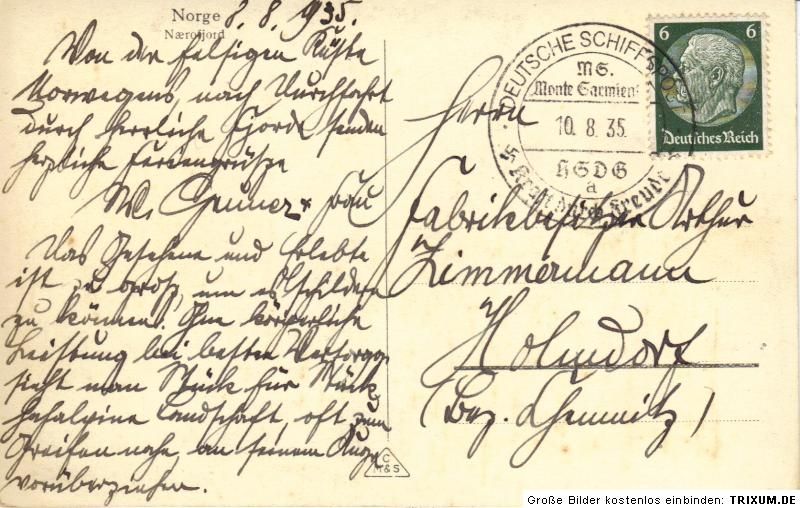 Norge 8. 8. 1935.
Nærøfjord
Von der felsigen Küste
Norwegens, nach Durchfahrt
durch herrliche Fjorde senden
herzliche Feriengrüsse
W. u. Frau
Das Gesehene und Erlebte
ist zu gross, um es schildern
zu können. Ohne körperliche
Leistung bei bester Versorgg.
sieht man Stück für Stück
hochalpine Landschaft, oft zum
Greifen nahe, an seinem Auge
vorüberziehen.
C
M&S
DEUTSCHE SCHIFFSPOST
MS.
Monte Sarmiento
10. 8. 35
HSDG
a
Kraft durch Freude
6 6
Deutsches Reich
Herrn
Fabrikbesitzer Arthur
Zimmermann
(Bez. Chemnitz)
Große Bilder kostenlos einbinden: TRIXUM.DE